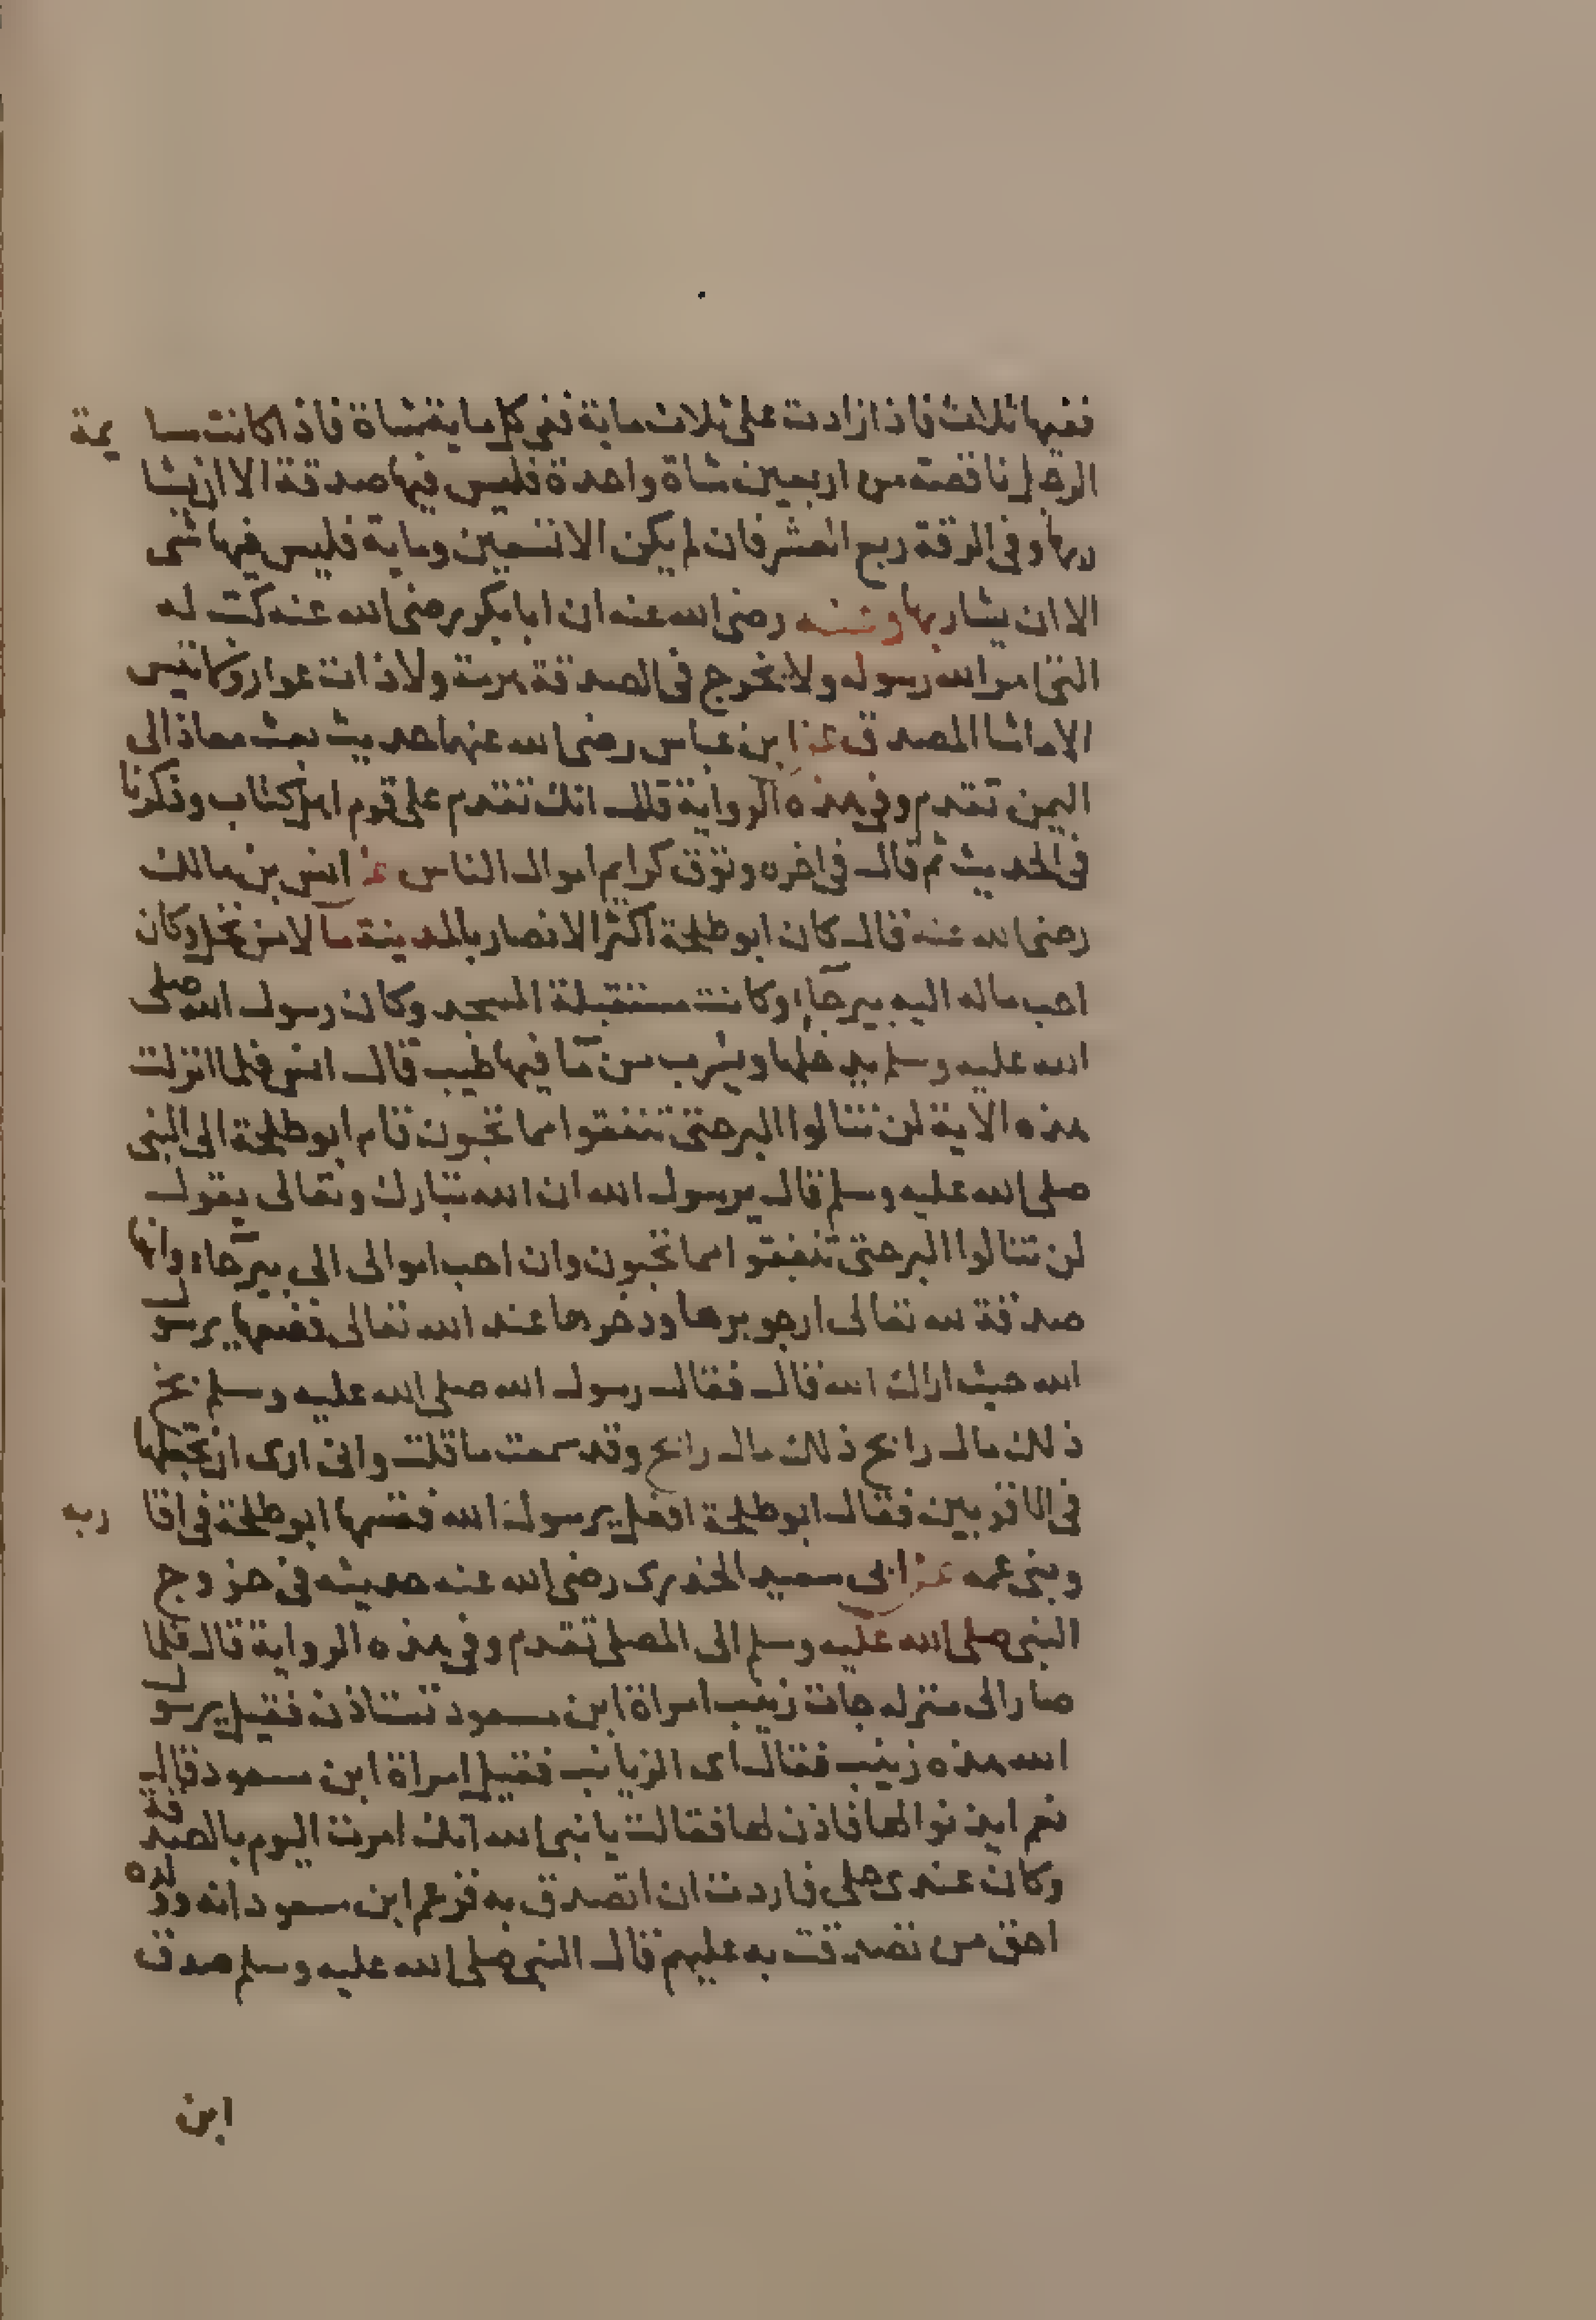 ففيها ثلاث فاذا زادت على ثلاث ماية ففى كل ماية شاة فاذا كانت سا يمة
الرجل ناقصة من اربعين شاة واحدة فليس فيها صدقة الا ان يشا
ربها وفى الرقة ربع العشر فان لم يكن الا تسعين وماية فليس فيها شى
الا ان يشا ربها وعنه رضى الله عنه ان ابا بكر رضى الله عنه كتب له
التى امر الله رسوله ولا يخرج فى الصدقة هرمة ولا ذات عوار ولا تيس
الا ما شا المصدق عن ابن عباس رضى الله عنهما حديث بعث معاذ الى
اليمن تقدم وفى هذه الرواية قال انك تقدم على قوم اهل كتاب وذكر با
فى الحديث ثم قال فى اخره وتوق كرايم اموال الناس عن انس بن مالك
رضى الله عنه قال كان ابو طلحة اكثر الانصار بالمدينة مالا من نخل وكان
احب ماله اليه بيرحاء وكانت مستقبلة المسجد وكان رسول الله صلى
الله عليه وسلم يدخلها ويشرب من ما فيها طيب قال انس فلما انزلت
هذه الاية لن تنالوا البر حتى تنفقوا مما تحبون قام ابو طلحة الى النبى
صلى الله عليه وسلم قال يرسول الله ان الله تبارك وتعالى يقول
لن تنالوا البر حتى تنفقوا مما تحبون وان احب اموالى الى بيرحاء وانها
صدقة لله تعالى ارجو برها وذخرها عند الله تعالى فضعها يرسول
الله حيث اراك الله قال فقال رسول الله صلى الله عليه وسلم بخ
ذلك مال رابح ذلك مال رابح وقد سمعت ما قلت وانى ارى ان تجعلها
فى الاقربين فقال ابو طلحة افعل يرسول الله فقسمها ابو طلحة فى اقا ربه
وبنى عمه عن ابى سعيد الخدرى رضى الله عنه حديثه فى خروج
النبى صلى الله عليه وسلم الى المصلى تقدم وفى هذه الرواية قال فلما
صار الى منزله جات زينب امراة ابن مسعود تستاذن فقيل يرسول
الله هذه زينب فقال اى الزيانب فقيل امراة ابن مسعود قال
نعم ايذنوا لها فاذن لها فقالت يا نبى الله انك امرت اليوم بالصدقة
وكان عندى حلى فاردت ان اتصدق به فزعم ابن مسعود انه وولده
احق من تصدقت به عليهم قال النبى صلى الله عليه وسلم صدق
ابن